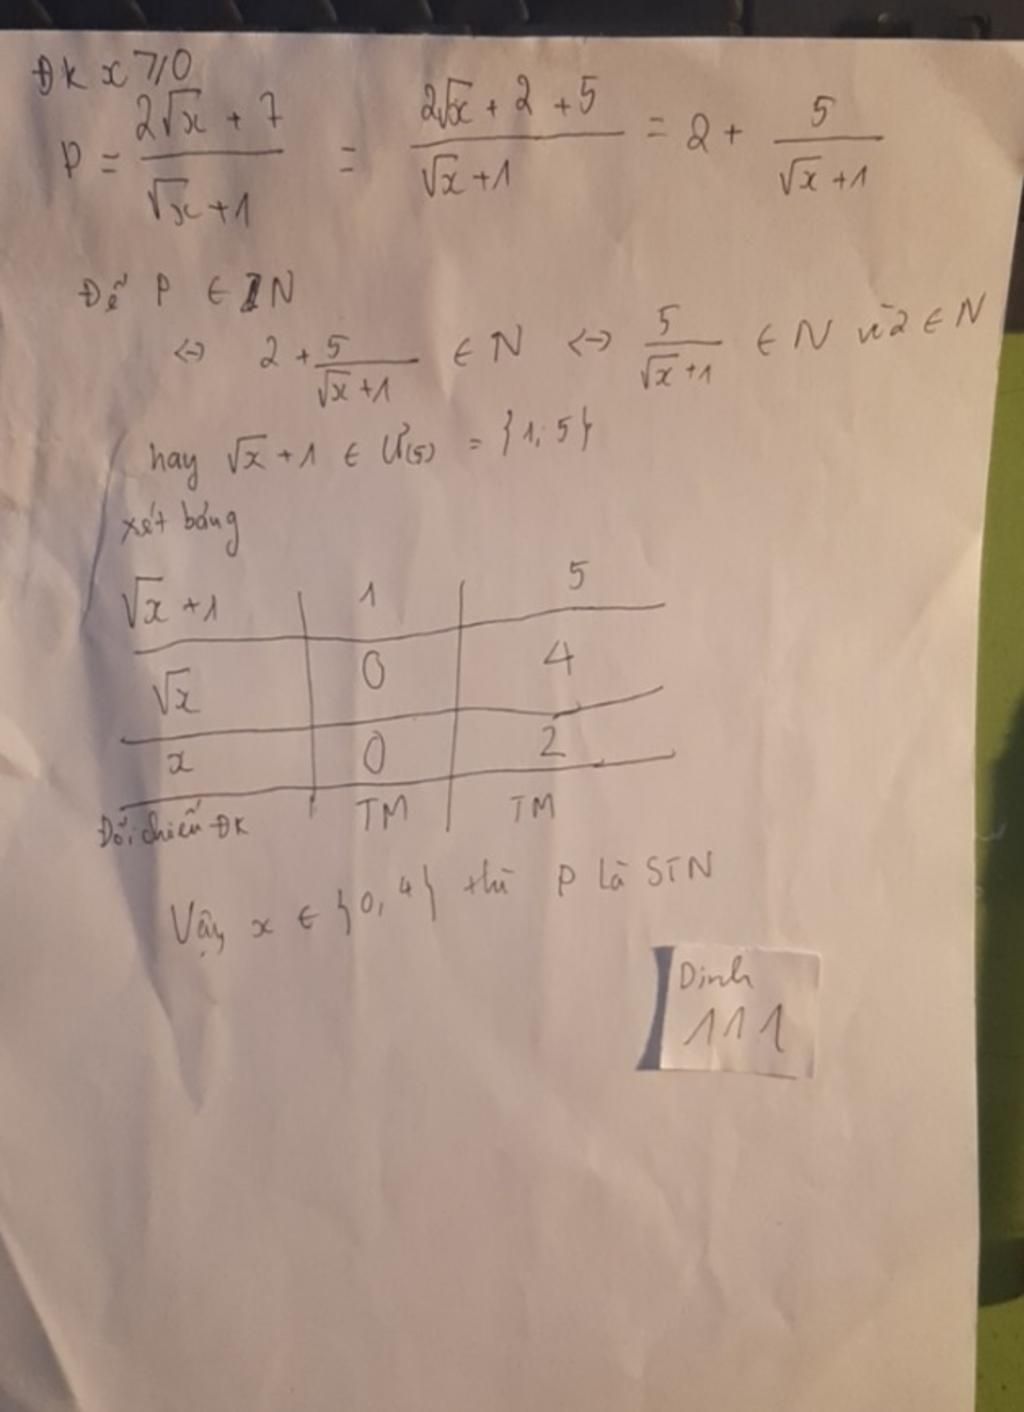 ĐK x ⩾ 0
P = (2√x + 7)/(√x + 1) = (2√x + 2 + 5)/(√x + 1) = 2 + 5/(√x + 1)
Để P ∈ N
<-> 2 + 5/(√x + 1) ∈ N <-> 5/(√x + 1) ∈ N vì 2 ∈ N
hay √x + 1 ∈ Ư(5) = {1; 5}
xét bảng
√x + 1 | 1 | 5
√x | 0 | 4
x | 0 | 2
Đối chiếu ĐK | TM | TM
Vậy x ∈ {0, 4} thì P là STN
Dinh
111